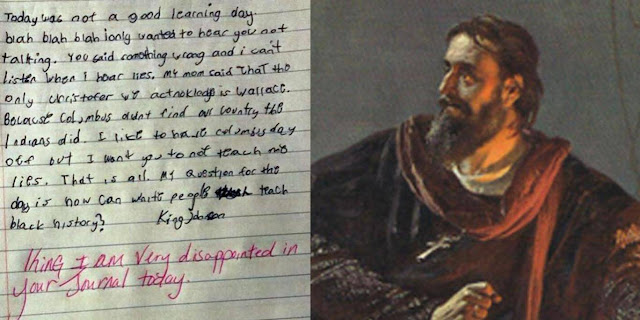 Today was not a good learning day.
blah blah blah ionly wanted to hear you not
talking. You said something wrong and i can't
listen when I hear lies. My mom said that the
only christofer we acknoledge is wallace.
Because Columbus didnt find our country the
Indians did. I like to have columbus day
off but I want you to not teach me
lies. That is all. My question for the
day is how can white people teach
black history?
King Johnson
King I am very disappointed in
your Journal today.